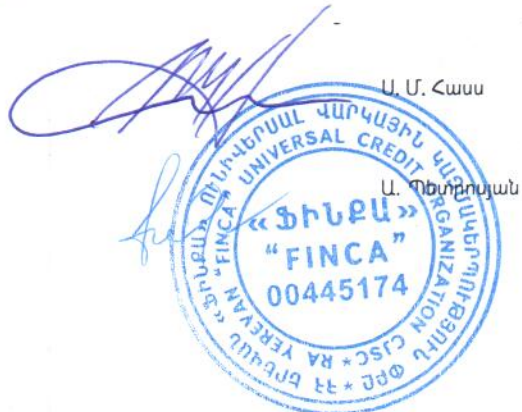 Ա. Մ. Հասս
Ա. Պետրոսյան
«ՖԻՆՔԱ» ՈՒՆԻՎԵՐՍԱԼ ՎԱՐԿԱՅԻՆ ԿԱԶՄԱԿԵՐՊՈՒԹՅՈՒՆ ՓԲԸ * ՀՀ ԵՐԵՎԱՆ
"FINCA" UNIVERSAL CREDIT ORGANIZATION CJSC * RA YEREVAN
«ՖԻՆՔԱ»
"FINCA"
00445174